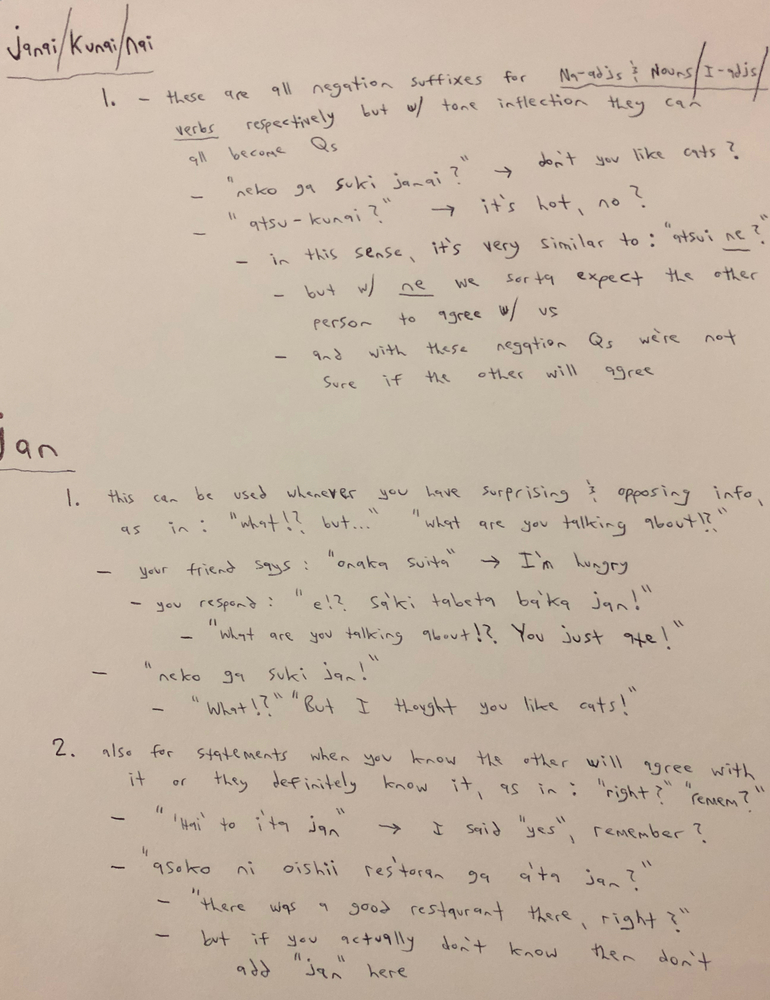 janai/kunai/nai
1. - these are all negation suffixes for Na-adjs & Nouns/I-adjs/
verbs respectively but w/ tone inflection they can
all become Qs
- "neko ga suki janai?" → don't you like cats?
- "atsu-kunai?" → it's hot, no?
- in this sense, it's very similar to: "atsui ne?"
- but w/ ne we sorta expect the other
person to agree w/ us
- and with these negation Qs we're not
sure if the other will agree
jan
1. this can be used whenever you have surprising & opposing info,
as in: "what!? but..." "what are you talking about!?"
- your friend says: "onaka suita" → I'm hungry
- you respond: "e!? sa'ki tabeta ba'ka jan!"
- "What are you talking about!? You just ate!"
- "neko ga suki jan!"
- "What!?" "But I thought you like cats!"
2. also for statements when you know the other will agree with
it or they definitely know it, as in: "right?" "remem?"
- "'Hai' to i'ta jan" → I said "yes", remember?
- "asoko ni oishii res'toran ga a'ta jan?"
- "there was a good restaurant there, right?"
- but if you actually don't know then don't
add "jan" here